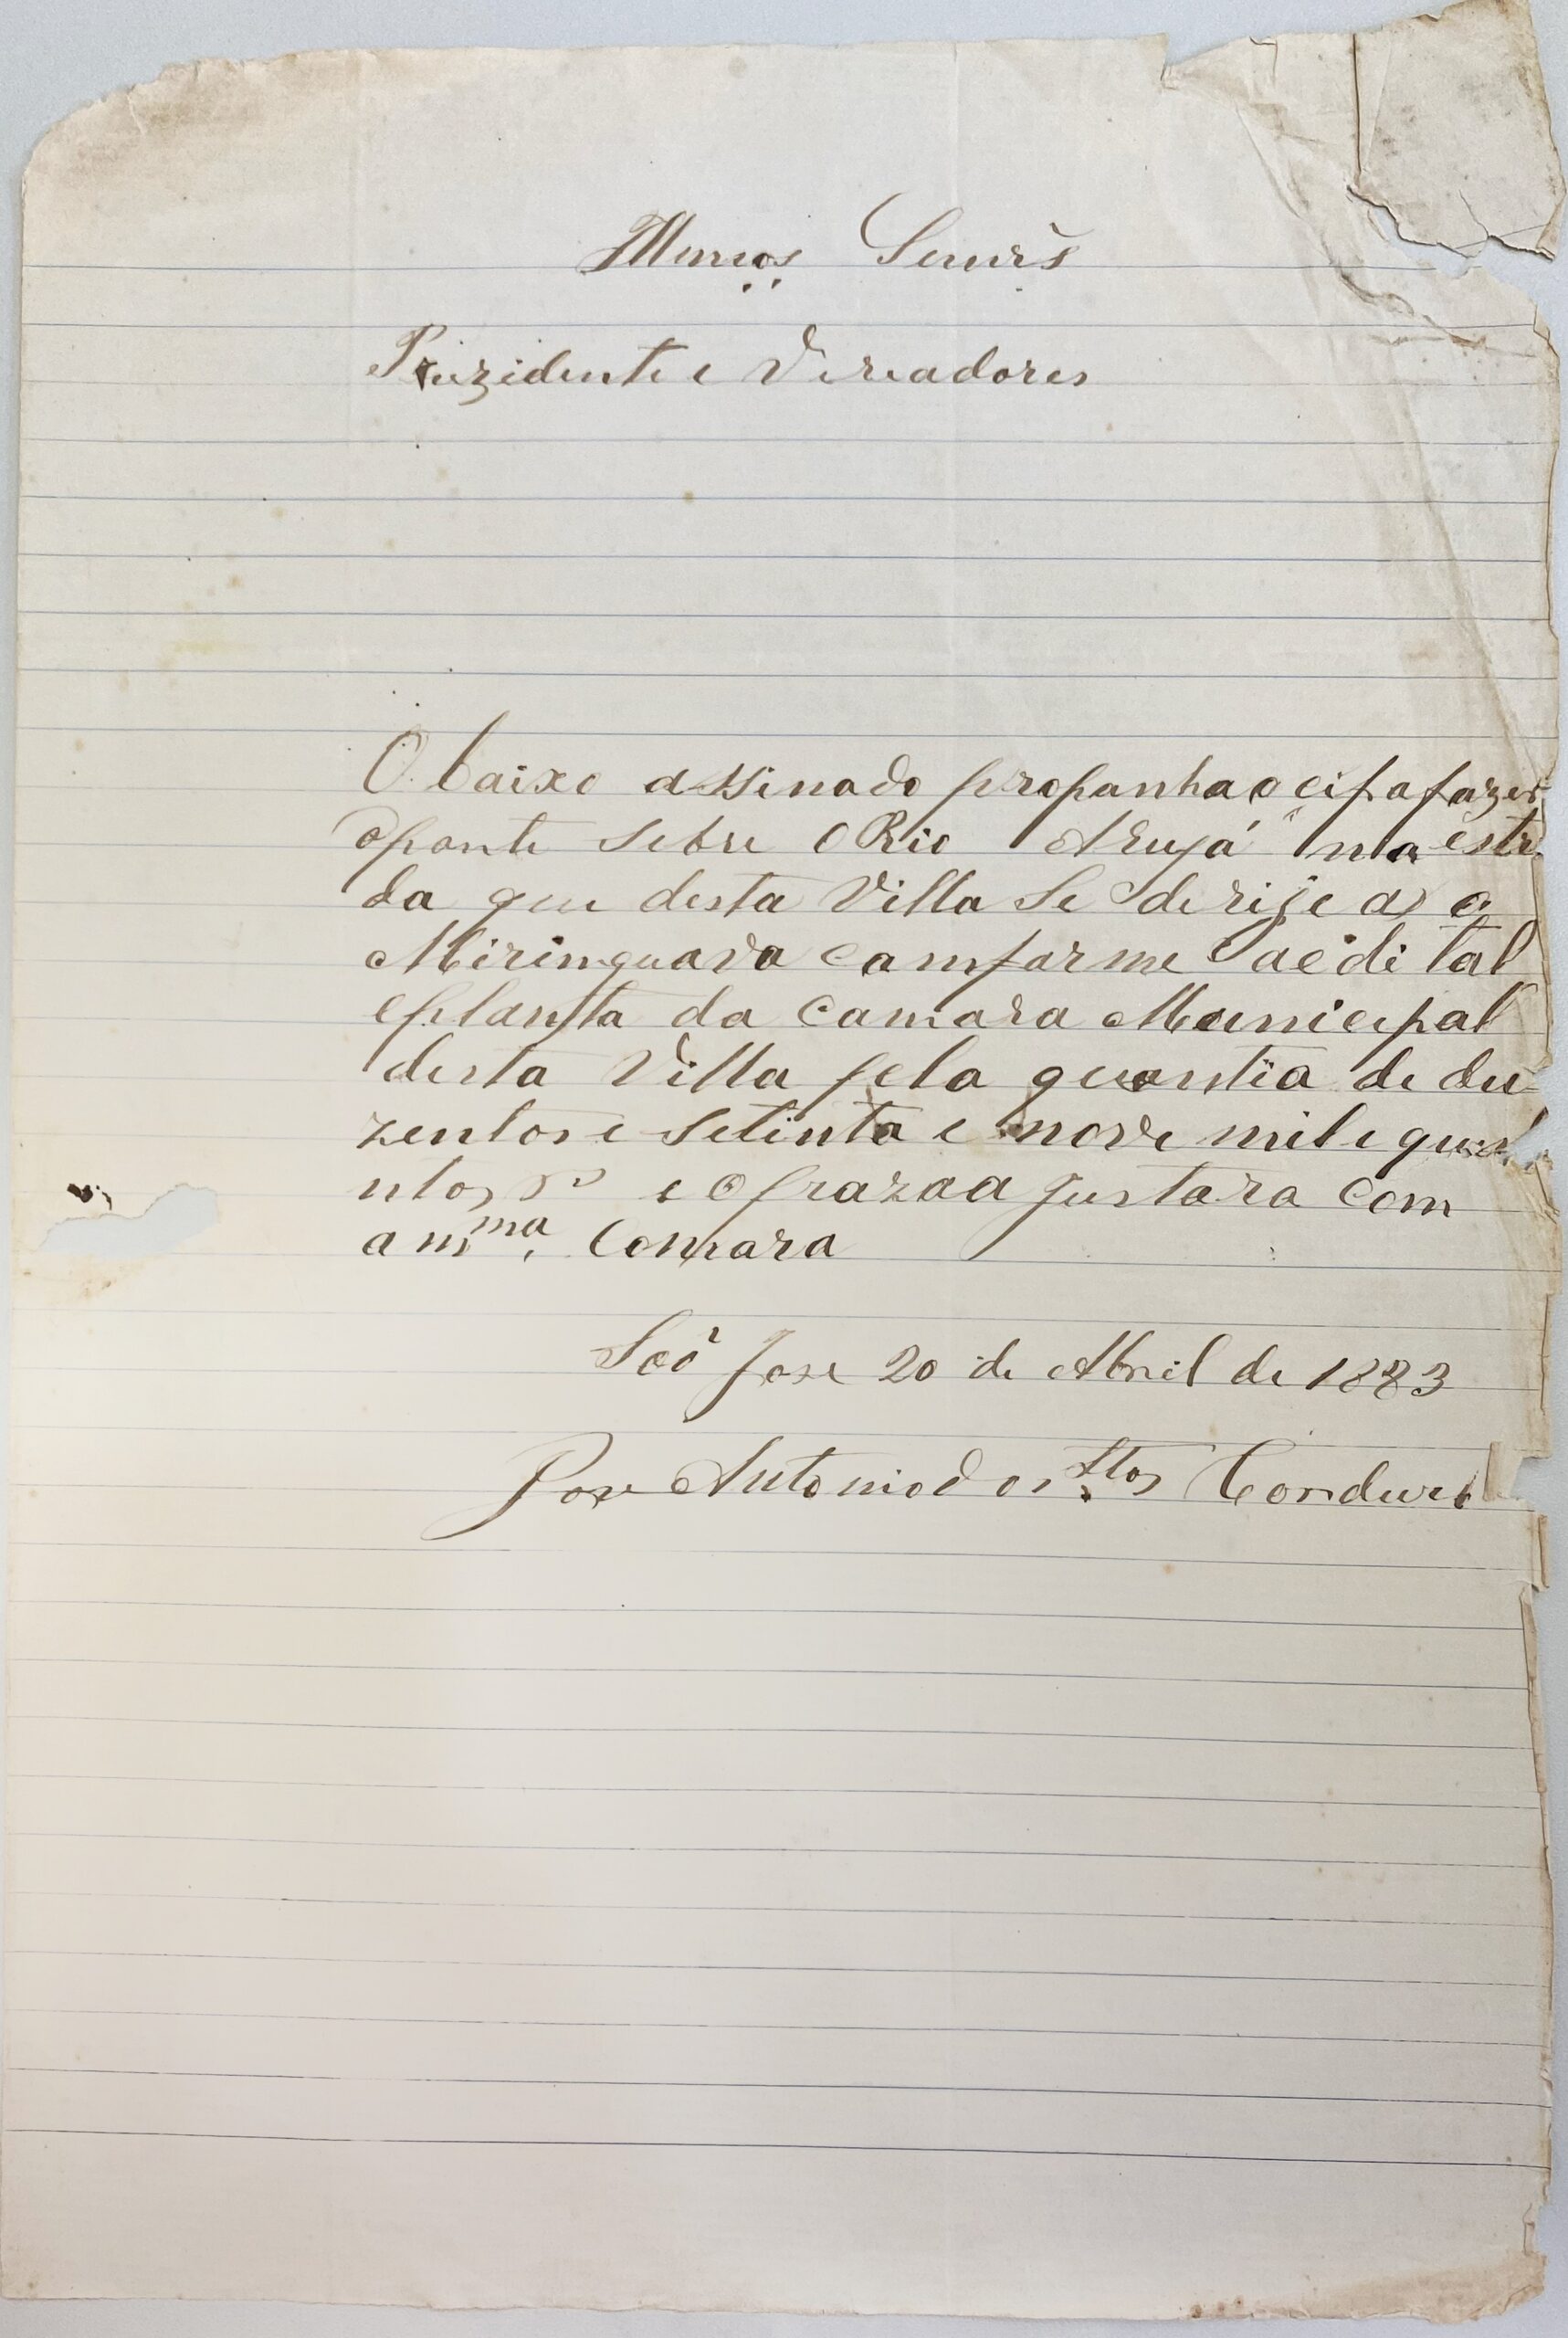 Illmos Senrs
Prezidente e Vereadores
O baixo assinado propanha o fazer
oponte sobre O Rio Arujá na estr
da que desta Villa Se derije ao
Miringuava comforme o aedital
eplanta da Camara Municipal
desta Villa pela quantia de du
zentos e setenta e nove mil e
ntos rs e o prazo ajustara com
a mma. Camara
São Jose 20 de Abril de 1883
Jose Antonio dos Stos Cordura